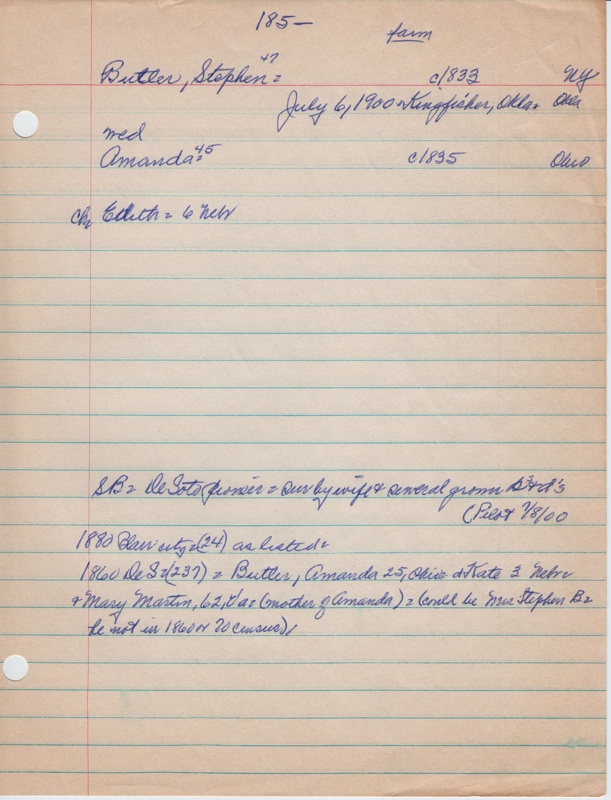 185-
farm
Butler, Stephen 47 = c/833 NY
July 6, 1900 Kingfisher, Okla. Okla
med
Amanda = 45 c/835 Ohio
ch Edith = 6 Nebr
SB = De Soto pioneer = sur by wife & several grown s & d's
(Pilot 7/8/00
1880 Blair city = (24) as listed =
1860 De S = (237) = Butler, Amanda 25, Ohio & Kate 3 Nebr =
& Mary Martin, 62, Va = (mother of Amanda) = (could be Mrs Stephen B =
he not in 1860 or 70 census),